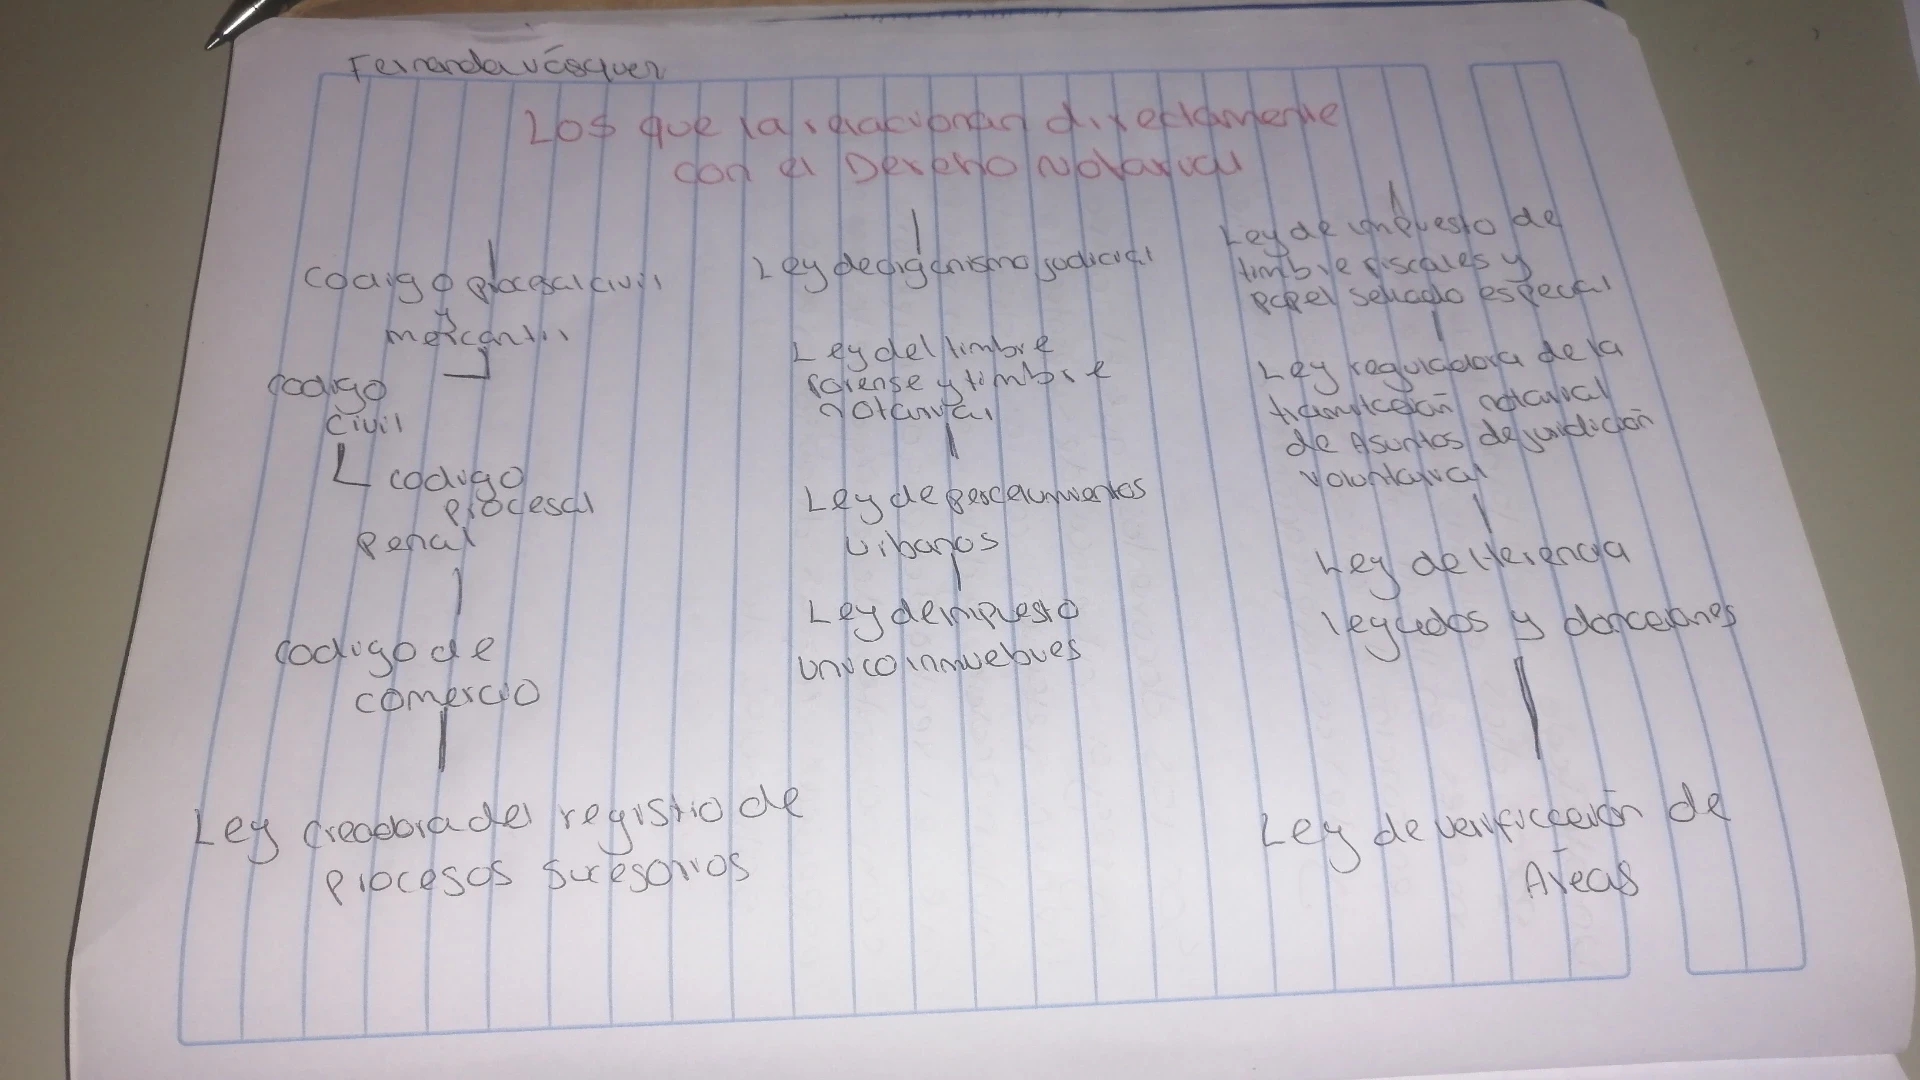 Fernanda Vásquez
Los que la relacionan directamente
con el Derecho Notarial
Codigo procesal civil
y
mercantil
Codigo
civil
codigo
procesal
penal
Codigo de
comercio
Ley creadora del registro de
procesos sucesorios
Ley de organismo judicial
Ley del timbre
forense y timbre
notarial
Ley de
urbanos
Ley de impuesto
unico inmuebles
Ley de impuesto de
timbre fiscales y
papel sellado especial
Ley reguladora de la
tramitación notarial
de Asuntos de juridición
voluntarial
Ley de Herencia
legados y donaciones
Ley de verificación de
Areas